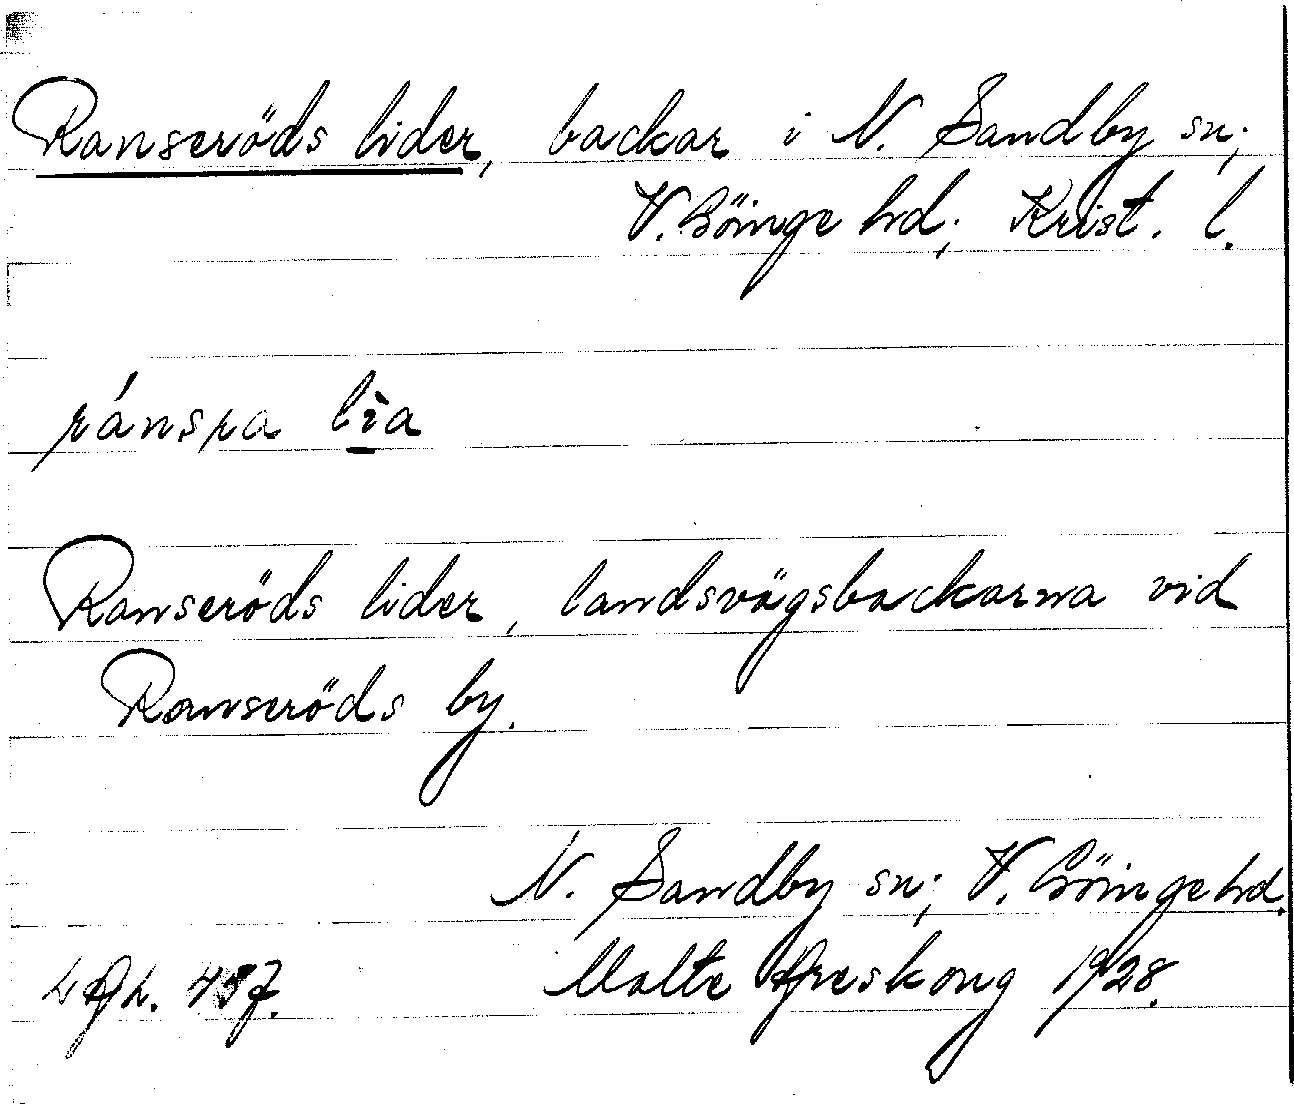 Ranseröds lider, backar i N. Sandby sn;
V. Göinge hd; Krist. l.
ránsra lìa
Ranseröds lider, landsvägsbackarna vid
Ranseröds by.
N. Sandby sn; V. Göinge hd.
Malte Areskoug 1928.